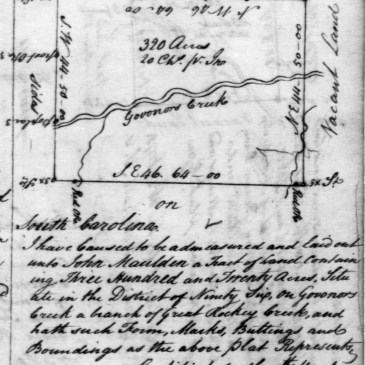 N.W 46 64-00
320 Acres
20 Chs. pr. In
S.W 44. 50-00
N.E 44. 50-00
Vacant Land
Govonors Creek
S.E 46. 64-00
Red Oak
3x St
on
South Carolina.
I have Caused to be admeasured and laid out
unto John Maulden a Tract of Land Contain
ing Three Hundred and Twenty Acres, Situ
ate in the District of Ninety Six, on Govonors
Creek a branch of Great Rockey Creek, and
hath such Form, Marks, Buttings and
Boundings as the above plat Represents,